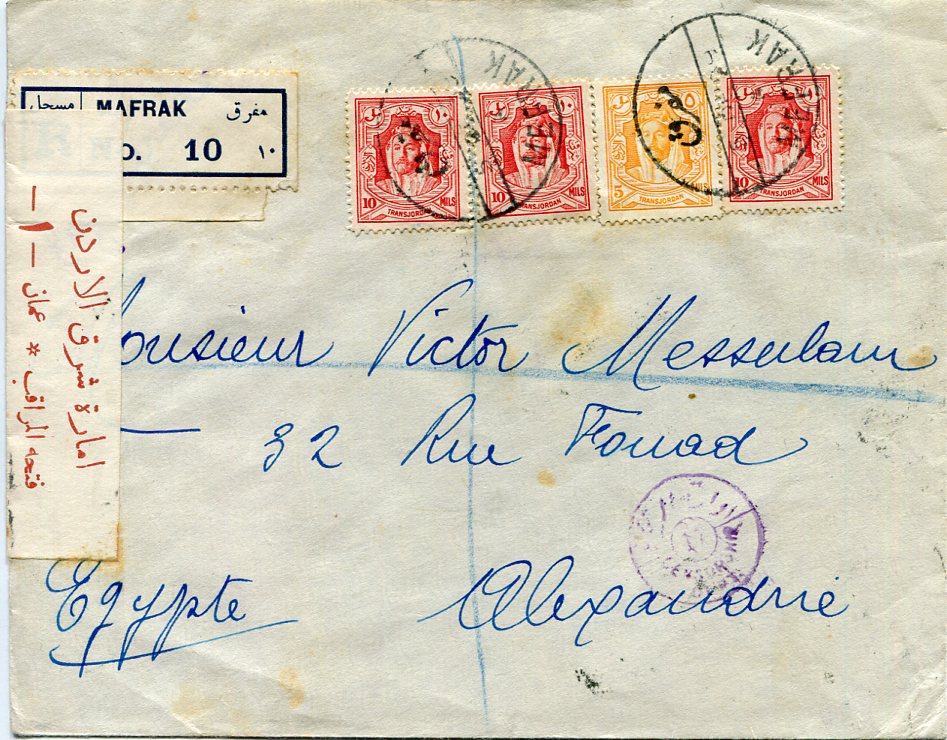 مسجل MAFRAK مفرق
o. 10 ١٠
امارة شرق الاردن
— ١ — عمان * فتحه المراقب
١٠ ١٠ ٥
10 MILS
TRANSJORDAN
10 MILS
TRANSJORDAN
5 MILS
TRANSJORDAN
10 MILS
TRANSJORDAN
MAFRAK
مفرق
MAFRAK
Monsieur Victor Messulam
32 Rue Fouad
Alexandrie
Egypte